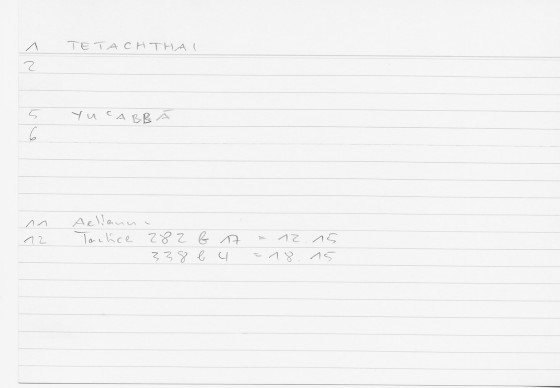 1 TETACHTHAI
2
5 YU ᶜABBĀ
6
11 Aelianus
12 Tactica 282 b 17 = 12.15
338 b 4 = 18.15